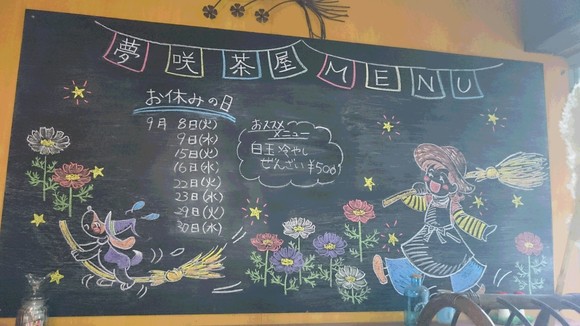 夢咲茶屋 MENU
お休みの日
9月 8日(火)
9日(水)
15日(火)
16日(水)
22日(火)
23日(水)
29日(火)
30日(水)
おススメ
メニュー
白玉冷やし
ぜんざい ¥500